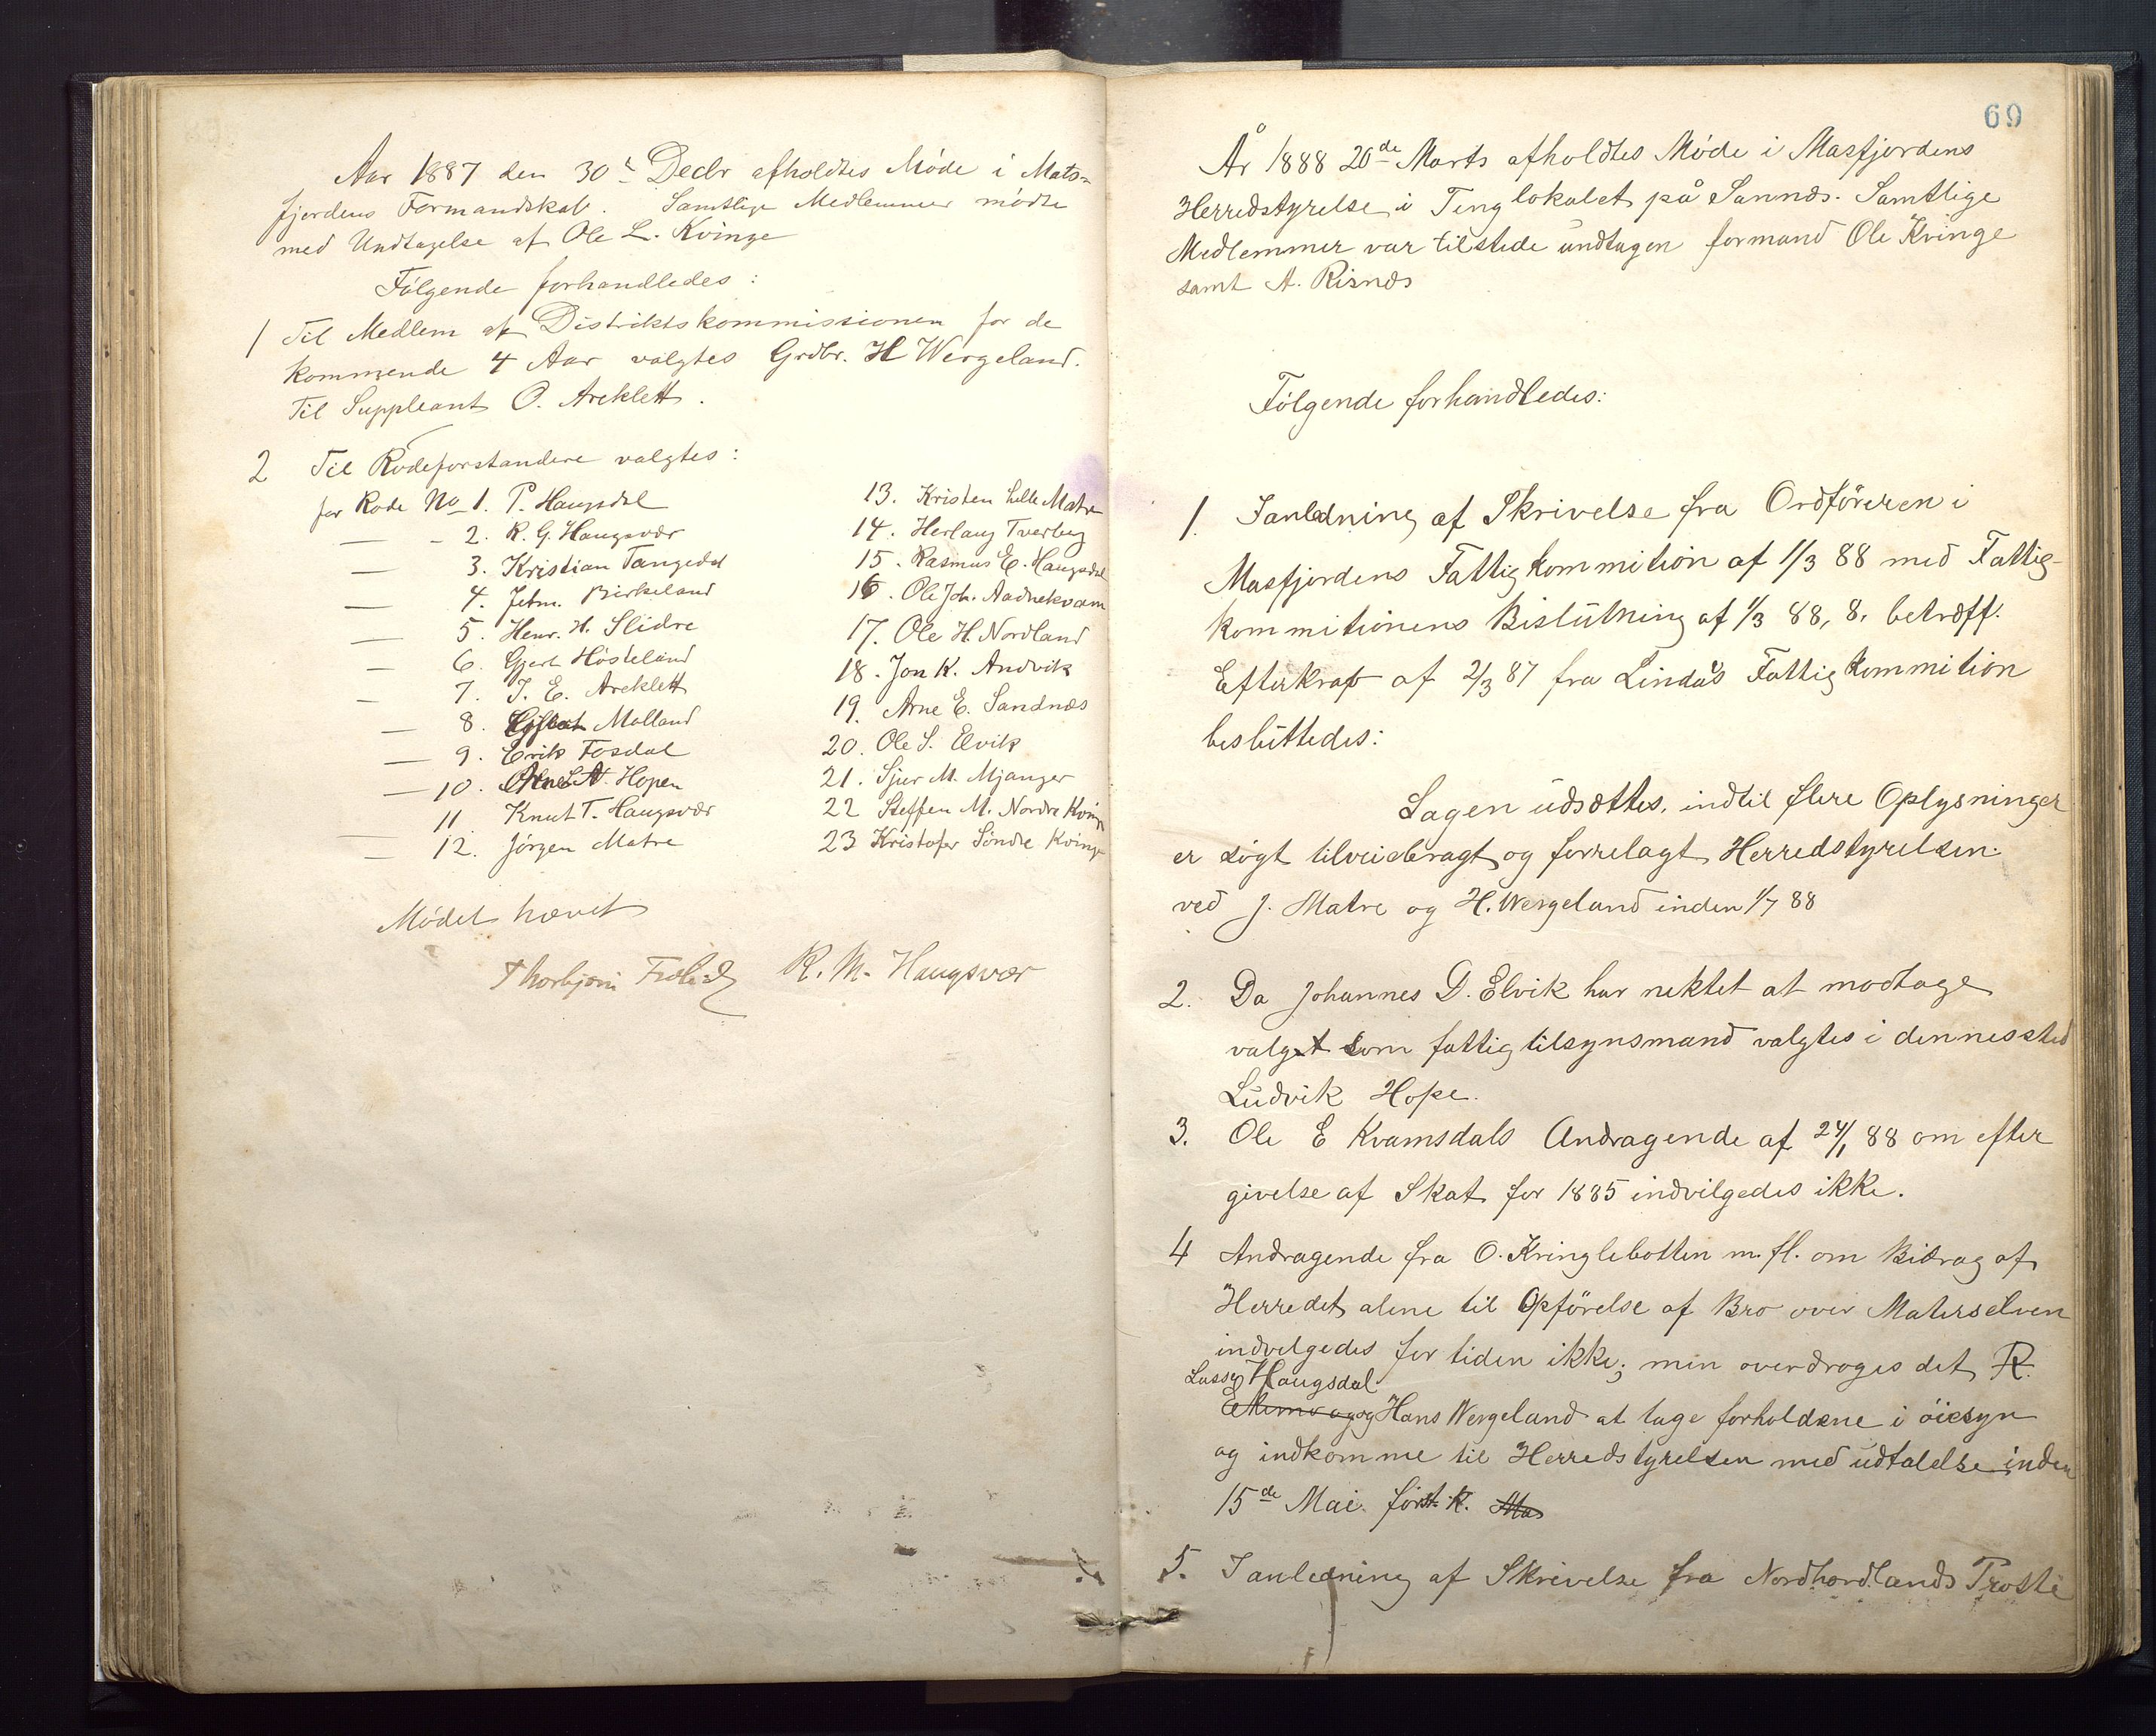 Aar 1887 den 30t Decbr afholdtes Møde i Mats-
fjordens Formandskab. Samtlige Medlemmer mødte
med Undtagelse af Ole L. Kvinge
Følgende forhandledes:
1 Til Medlem af Distriktskommissionen for de
kommende 4 Aar valgtes Grdbr. H Wergeland.
Til Suppleant O. Areklett.
2 Til Rodeforstandere valgtes:
for Rode No 1. P. Haugsdal
— - 2. R. G. Haugsvær
— 3. Kristian Tangedal
— 4. Jetm. Birkeland
— 5. Henr. H. Slidre
— 6. Gjert Høsteland
— 7. I. E. Areklett
— 8. Malland
— 9. Erik Fosdal
— 10. Hopen
11 Knut T. Haugsvær
— 12. Jørgen Matre
13. Kristen lille Matre
14. Herlaug Tverberg
15. Rasmus E. Haugsdal
16. Ole Joh. Aadnekvam
17. Ole H. Nordland
18. Jon K. Andvik
19. Arne E. Sandnæs
20. Ole S. Elvik
21. Sjur M. Mjanger
22 Steffen M. Nordre Kvinge
23 Kristofer Søndre Kvinge
Mødet hævet
Thorbjørn R. M. Haugsvær
69
År 1888 20de Marts afholdtes Møde i Masfjordens
Herredstyrelse i Tinglokalet på Sannæs. Samtlige
Medlemmer var tilstede undtagen formand Ole Kvinge
samt A. Risnæs
Følgende forhandledes:
1. Ianledning af Skrivelse fra Ordføreren i
Masfjordens Fattigkommition af 1/3 88 med Fattig-
kommitionens Beslutning af 1/3 88, 8. betræff.
Efterkrav af 2/3 87 fra Lindås Fattigkommition
besluttedes:
Sagen udsættes, indtil flere Oplysninger
er søgt tilveiebragt og forrelagt Herredstyrelsen
ved J. Matre og H. Wergeland inden 1/7 88
2. Da Johannes D. Elvik har nektet at modtage
valget som fattigtilsynsmand valgtes i dennessted
Ludvik Hope.
3. Ole E Kvamsdals Andragende af 24/1 88 om efter
givelse af Skat for 1885 indvilgedes ikke.
4 Andragende fra O. Kringlebotten m. fl. om Bidrag af
Herredet alene til Opførelse af Bro over Materselven
indvelgedes for tiden ikke; men overdroges det R.
Lasse Haugsdal
og Hans Wergeland at tage forholdene i øiesyn
og indkomme til Herredstyrelsen med udtalelse inden
15de Mai først k. Ma
5. I anledning af Skrivelse fra Nordhordlands Prosti